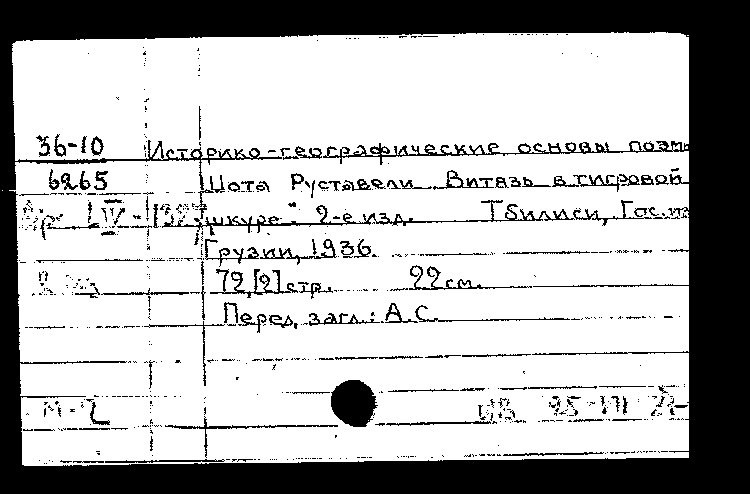 36-10 Историко-географические основы поэм
6265 Шота Руставели Витязь в тигровой
LIV-1327 шкуре". 2-е изд. Тбилиси, Гос.из
Грузии, 1936.
72,[2] стр. 22 см.
Перед загл.: А.С.
М-2 25-VII